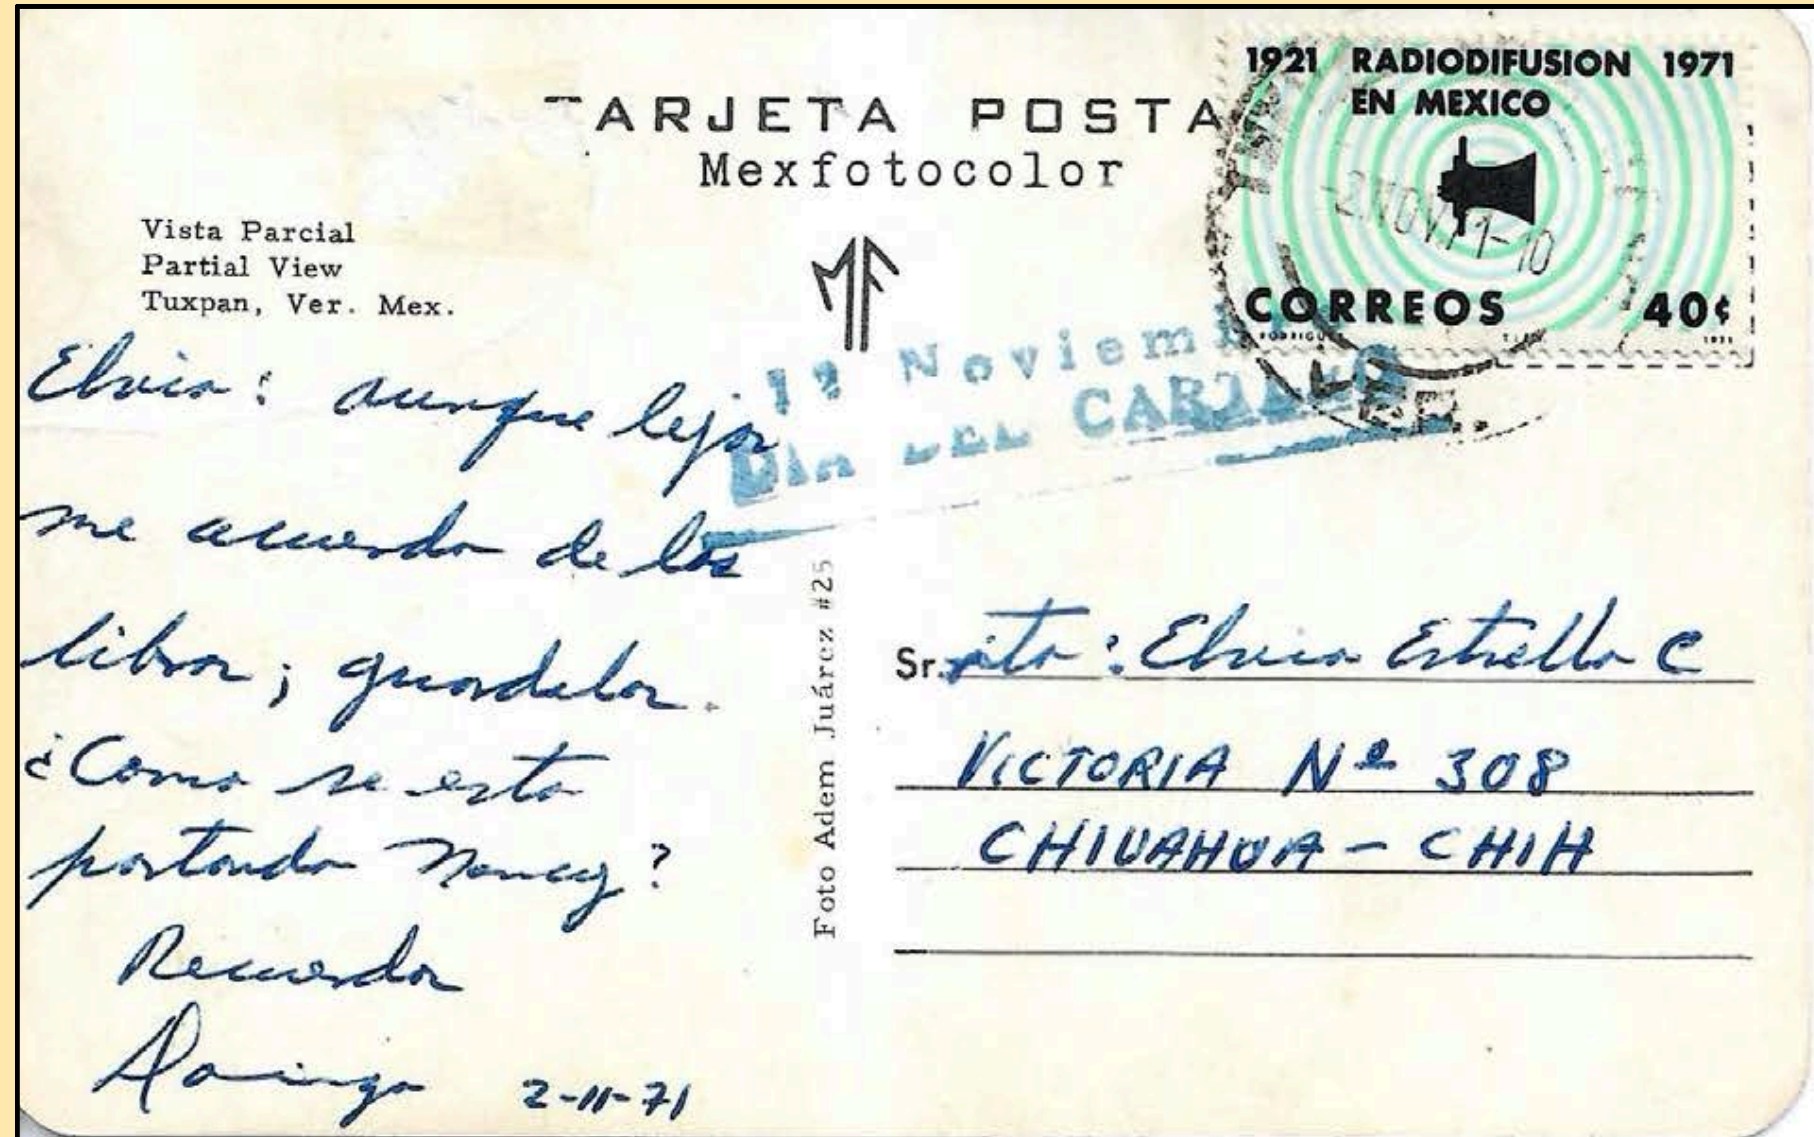 TARJETA POSTA
Mexfotocolor
1921 RADIODIFUSION 1971
EN MEXICO
-2.NOV.71-10
CORREOS 40¢
VER.
Vista Parcial
Partial View
Tuxpan, Ver. Mex.
12 Noviemb
DIA DEL CARTERO
Elvia: aunque lejos
me acuerdo de los
libros; guardelos.
¿Como se esta
portando Nancy?
Recuerdos
2-11-71
Foto Adem Juárez #25
Sr.ita: Elvia Estrella C
VICTORIA Nº 308
CHIUAHUA - CHIH